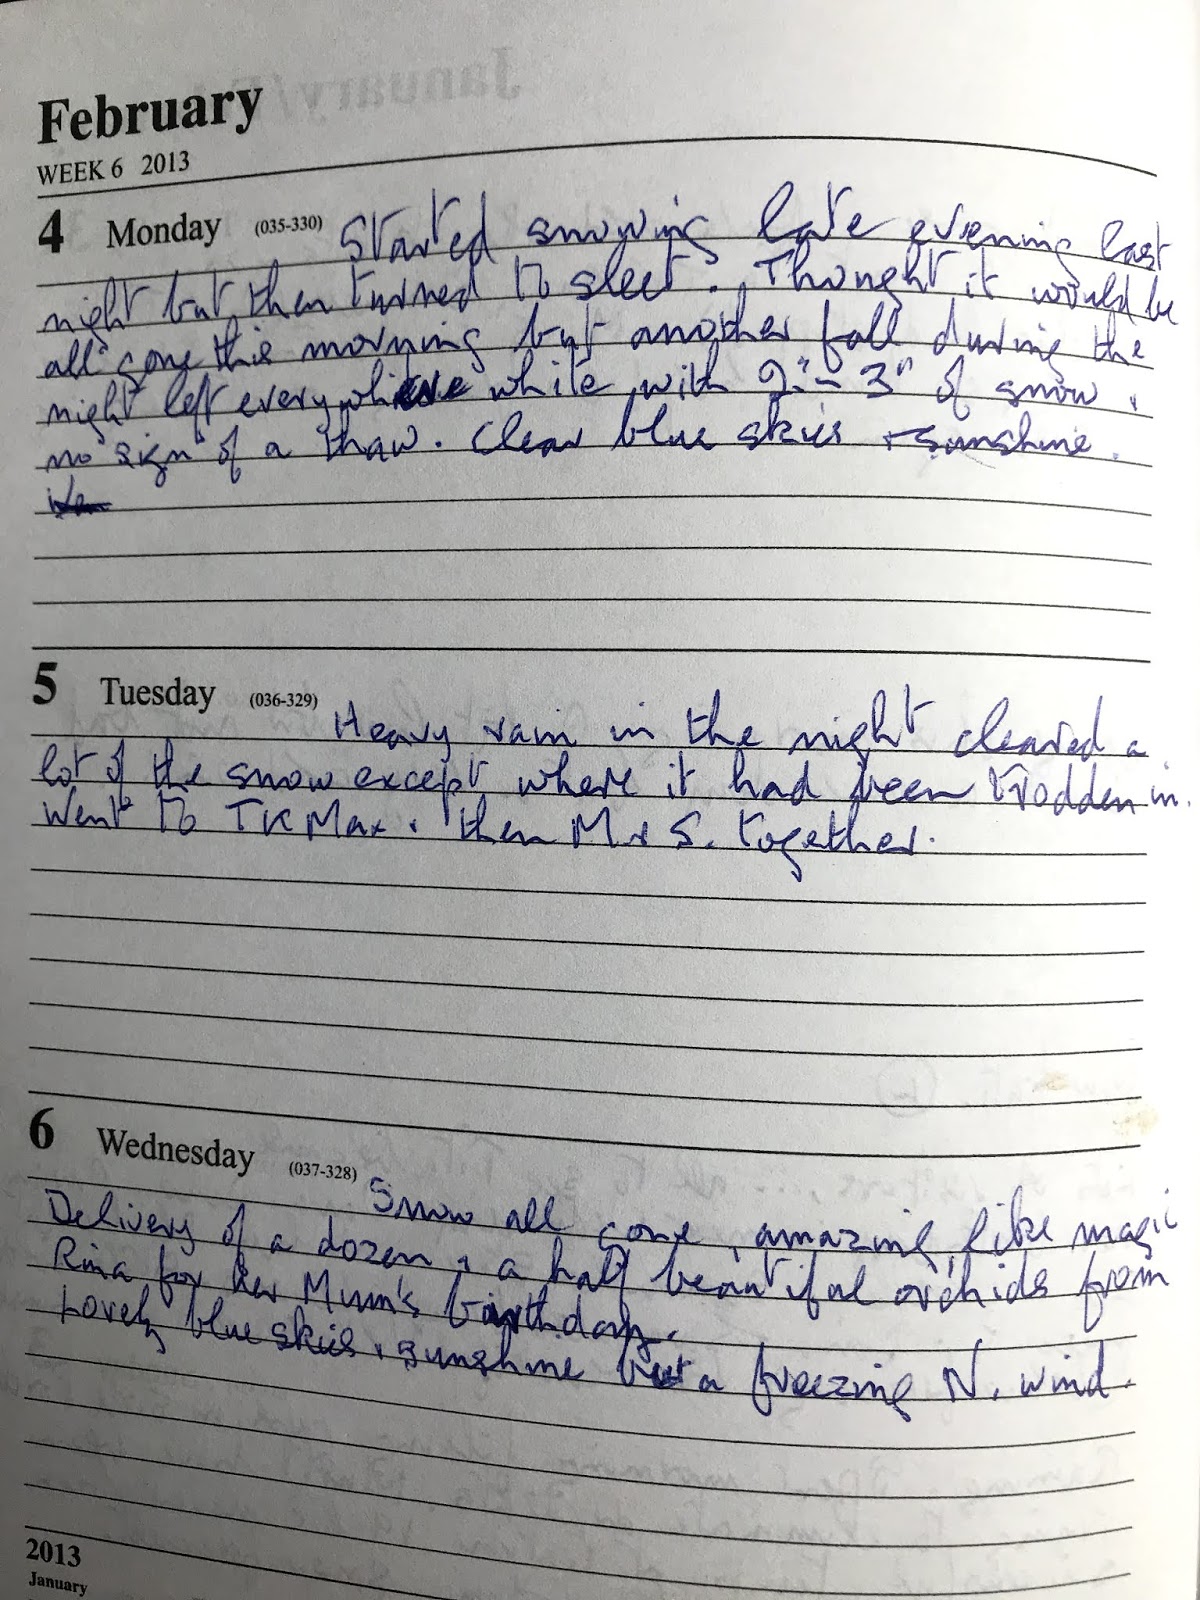 February
WEEK 6 2013
4 Monday (035-330) Started snowing late evening last
night but then turned to sleet. Thought it would be
all gone this morning but another fall during the
night left everywhere white with 2"- 3" of snow.
no sign of a thaw. Clear blue skies + sunshine.
5 Tuesday (036-329) Heavy rain in the night cleared a
lot of the snow except where it had been trodden in.
Went to TK Max. then M + S. together.
6 Wednesday (037-328) Snow all gone, amazing, like magic
Delivery of a dozen + a half beautiful orchids from
Rina for her Mum's birthday.
Lovely blue skies + sunshine but a freezing N. wind.
2013
January